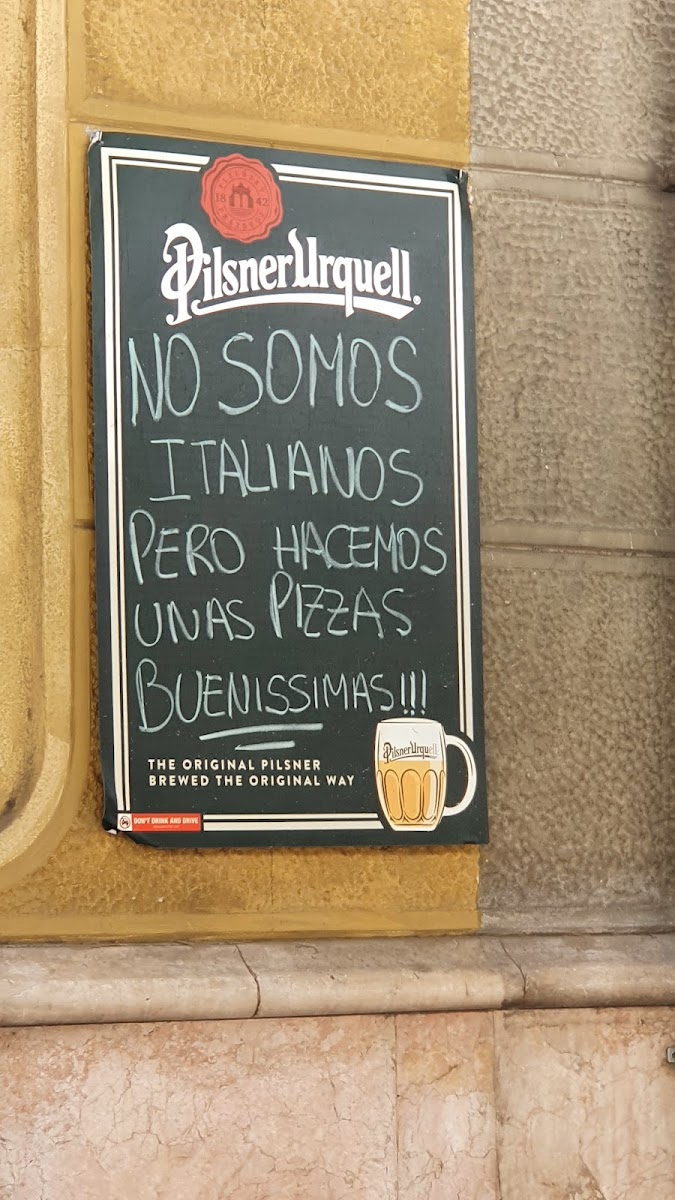 18 42
Pilsner Urquell
NO SOMOS
ITALIANOS
PERO HACEMOS
UNAS PIZZAS
BUENISSIMAS!!!
PilsnerUrquell
THE ORIGINAL PILSNER
BREWED THE ORIGINAL WAY
DON'T DRINK AND DRIVE